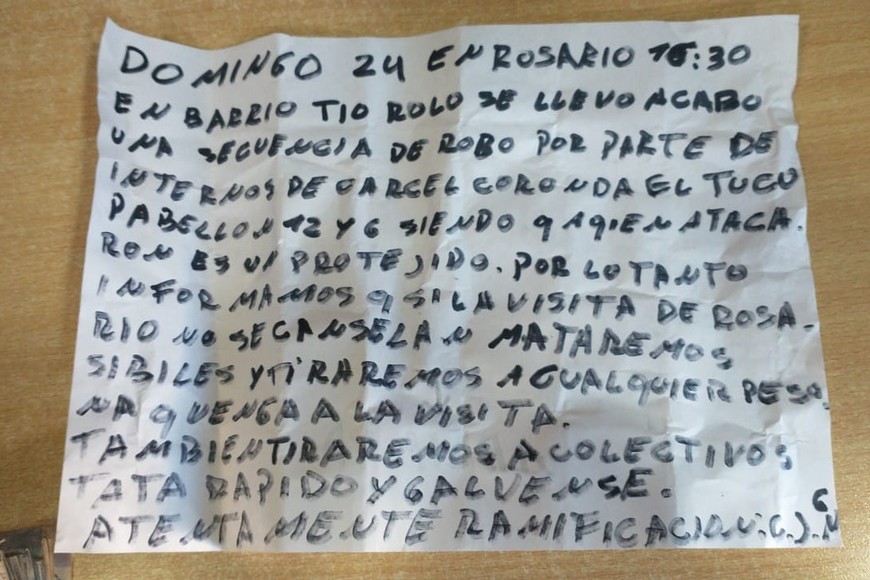 DOMINGO 24 EN ROSARIO 16:30
EN BARRIO TIO ROLO SE LLEVO ACABO
UNA SECUENCIA DE ROBO POR PARTE DE
INTERNOS DE CARCEL CORONDA EL TUCU
PABELLON 12 Y 6 SIENDO Q AQIEN ATACA.
RON ES UN PROTEJIDO. POR LO TANTO
INFORMAMOS Q SI LA VISITA DE ROSA.
RIO NO SE CANSELAN MATAREMOS
SIBILES Y TIRAREMOS A CUALQUIER PERSO.
NA QUENGA A LA VISITA.
TAMBIEN TIRAREMOS A COLECTIVOS
TATA RAPIDO Y GALVENSE.
ATENTAMENTE RAMIFICACION